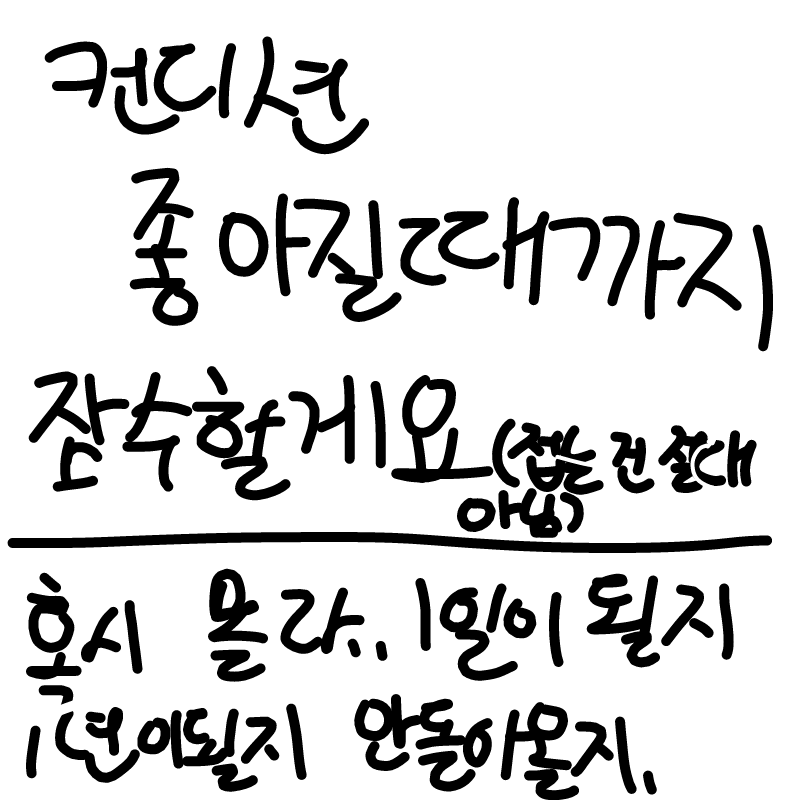 컨디션
좋아질때까지
잠수할게요 (접는 건 절대
아님)
혹시 몰라.. 1일이 될지
1년이될지 안돌아올지.